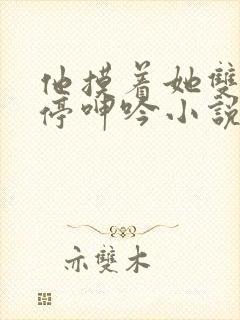 他摸着她雙
停呻吟小說
亦雙木